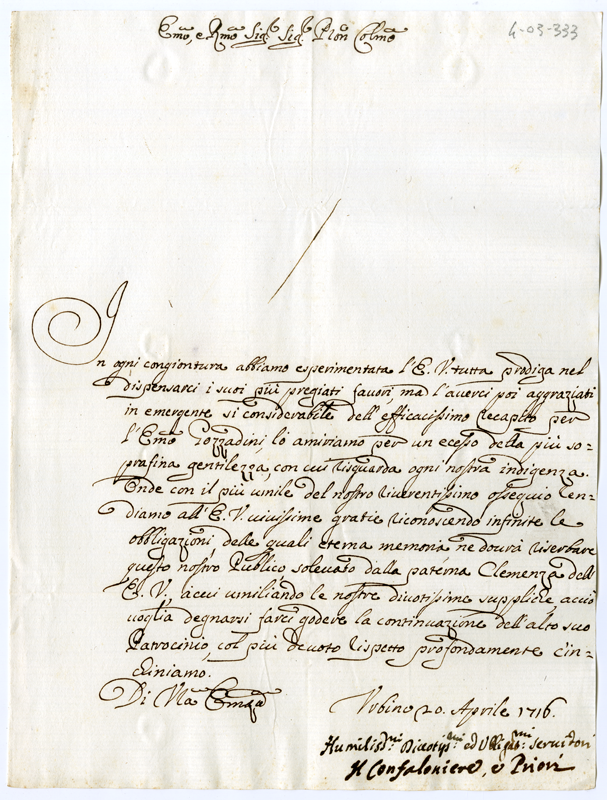 Emo, e Rmo Sig.r Sig.r Pron Colmo
4-03-333
In ogni congiontura abbiamo esperimentata l'E. V. tutta prodiga nel
dispensarci i suoi più pregiati favori, ma l'averci poi aggraziati
in emergente si considerabile dell'efficacissimo recapito per
l'Emo Gozzadini, lo amiriamo per un ecesso della più so-
prafina gentilezza, con cui risguarda ogni nostra indigenza.
Onde con il più umile del nostro riverentissimo osseguio ren-
diamo all'E. V. vivissime gratie riconoscendo infinite le
obbligazioni, delle quali eterna memoria ne dovrà riserbare
questo nostro Publico solevato dalla paterna Clemenza dell'
E. V., a cui umiliando le nostre divotissime suppliche, acciò
voglia degnarsi farci godere la continuazione dell'alto suo
Patrocinio, col più devoto rispetto profondamente c'in-
chiniamo.
Di Vra Emza
Urbino 20. Aprile 1716.
Humiliss.mi Divotiss.mi ed Obligat.mi Servitori
Il Confaloniere, e Priori